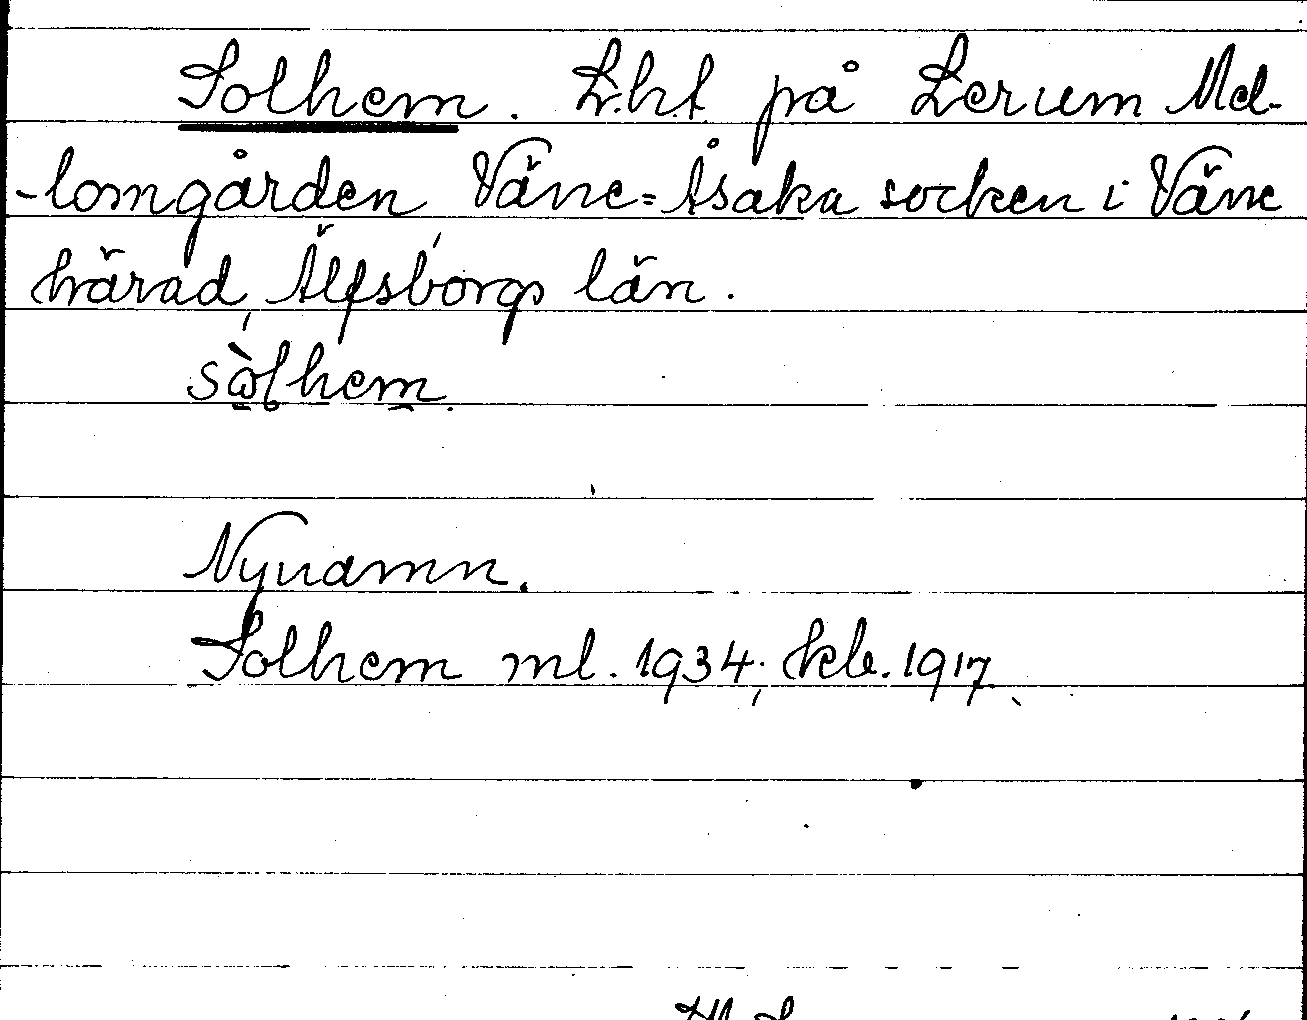 Solhem. L.h.t på Lerum Mel-
-lomgården, Väne=Åsaka socken i Väne
härad, Älfsborgs län.
sòlhem.
Nynamn.
Solhem ml. 1934; kle. 1917